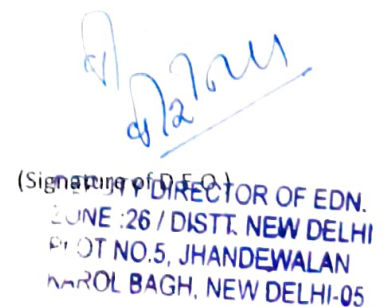 (Signature of D.E.O.)
DEPUTY DIRECTOR OF EDN.
ZONE :26 / DISTT. NEW DELHI
PLOT NO.5, JHANDEWALAN
KAROL BAGH, NEW DELHI-05